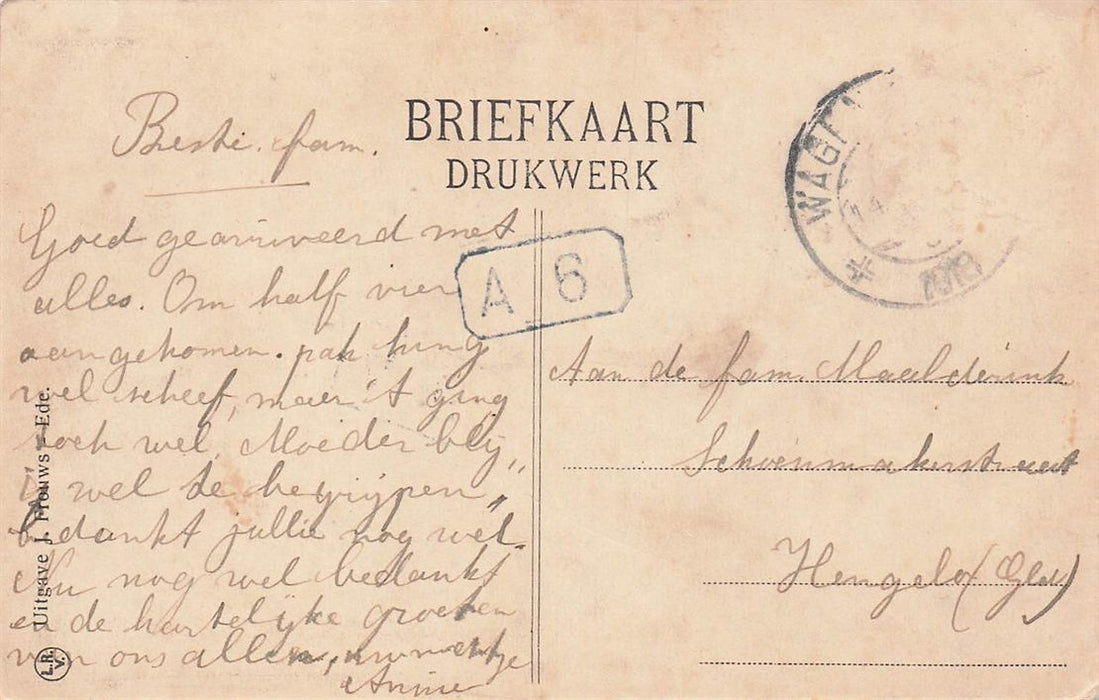 BRIEFKAART
DRUKWERK
Beste fam.
Goed gearriveerd met
alles. Om half vier
aangekomen. pak hing
wel scheef, maar 't ging
toch wel. Moeder blij,
is wel te begrijpen,
bedankt jullie nog wel.
Nu nog wel bedankt
en de hartelijke groeten
van ons allen,
Annie
A 6
WAGE
Aan de fam. Maalderink
Schoenmakerstraat
Hengelo (Gld)
Uitgave J. Frouws - Ede.
L.R.
V.